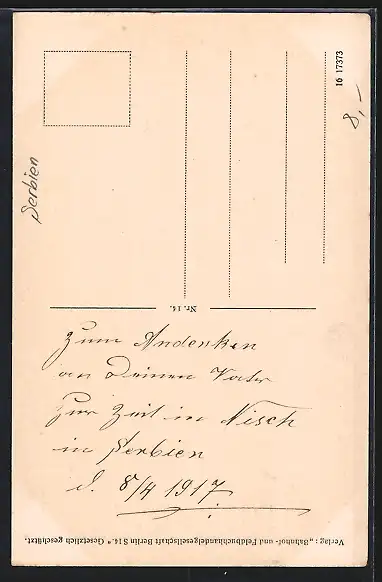 16 17373
8,–
Serbien
Nr. 14.
Zum Andenken
an Deinen Vater
zur Zeit in Nisch
in Serbien
d. 8/4 1917
Verlag: „Bahnhof- und Feldbuchhandelgesellschaft Berlin S 14." Gesetzlich geschützt.